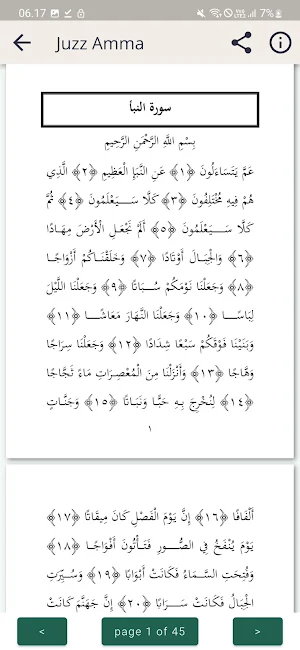 06.17
7%
Juzz Amma
سورة النبأ
بِسْمِ اللَّهِ الرَّحْمَنِ الرَّحِيمِ
عَمَّ يَتَسَاءَلُونَ ﴿١﴾ عَنِ النَّبَإِ الْعَظِيمِ ﴿٢﴾ الَّذِي
هُمْ فِيهِ مُخْتَلِفُونَ ﴿٣﴾ كَلَّا سَيَعْلَمُونَ ﴿٤﴾ ثُمَّ
كَلَّا سَيَعْلَمُونَ ﴿٥﴾ أَلَمْ نَجْعَلِ الْأَرْضَ مِهَادًا
﴿٦﴾ وَالْجِبَالَ أَوْتَادًا ﴿٧﴾ وَخَلَقْنَاكُمْ أَزْوَاجًا
﴿٨﴾ وَجَعَلْنَا نَوْمَكُمْ سُبَاتًا ﴿٩﴾ وَجَعَلْنَا اللَّيْلَ
لِبَاسًا ﴿١٠﴾ وَجَعَلْنَا النَّهَارَ مَعَاشًا ﴿١١﴾
وَبَنَيْنَا فَوْقَكُمْ سَبْعًا شِدَادًا ﴿١٢﴾ وَجَعَلْنَا سِرَاجًا
وَهَّاجًا ﴿١٣﴾ وَأَنْزَلْنَا مِنَ الْمُعْصِرَاتِ مَاءً ثَجَّاجًا
﴿١٤﴾ لِنُخْرِجَ بِهِ حَبًّا وَنَبَاتًا ﴿١٥﴾ وَجَنَّاتٍ
١
أَلْفَافًا ﴿١٦﴾ إِنَّ يَوْمَ الْفَصْلِ كَانَ مِيقَاتًا ﴿١٧﴾
يَوْمَ يُنْفَخُ فِي الصُّورِ فَتَأْتُونَ أَفْوَاجًا ﴿١٨﴾
وَفُتِحَتِ السَّمَاءُ فَكَانَتْ أَبْوَابًا ﴿١٩﴾ وَسُيِّرَتِ
الْجِبَالُ فَكَانَتْ سَرَابًا ﴿٢٠﴾ إِنَّ جَهَنَّمَ كَانَتْ
<
page 1 of 45
>